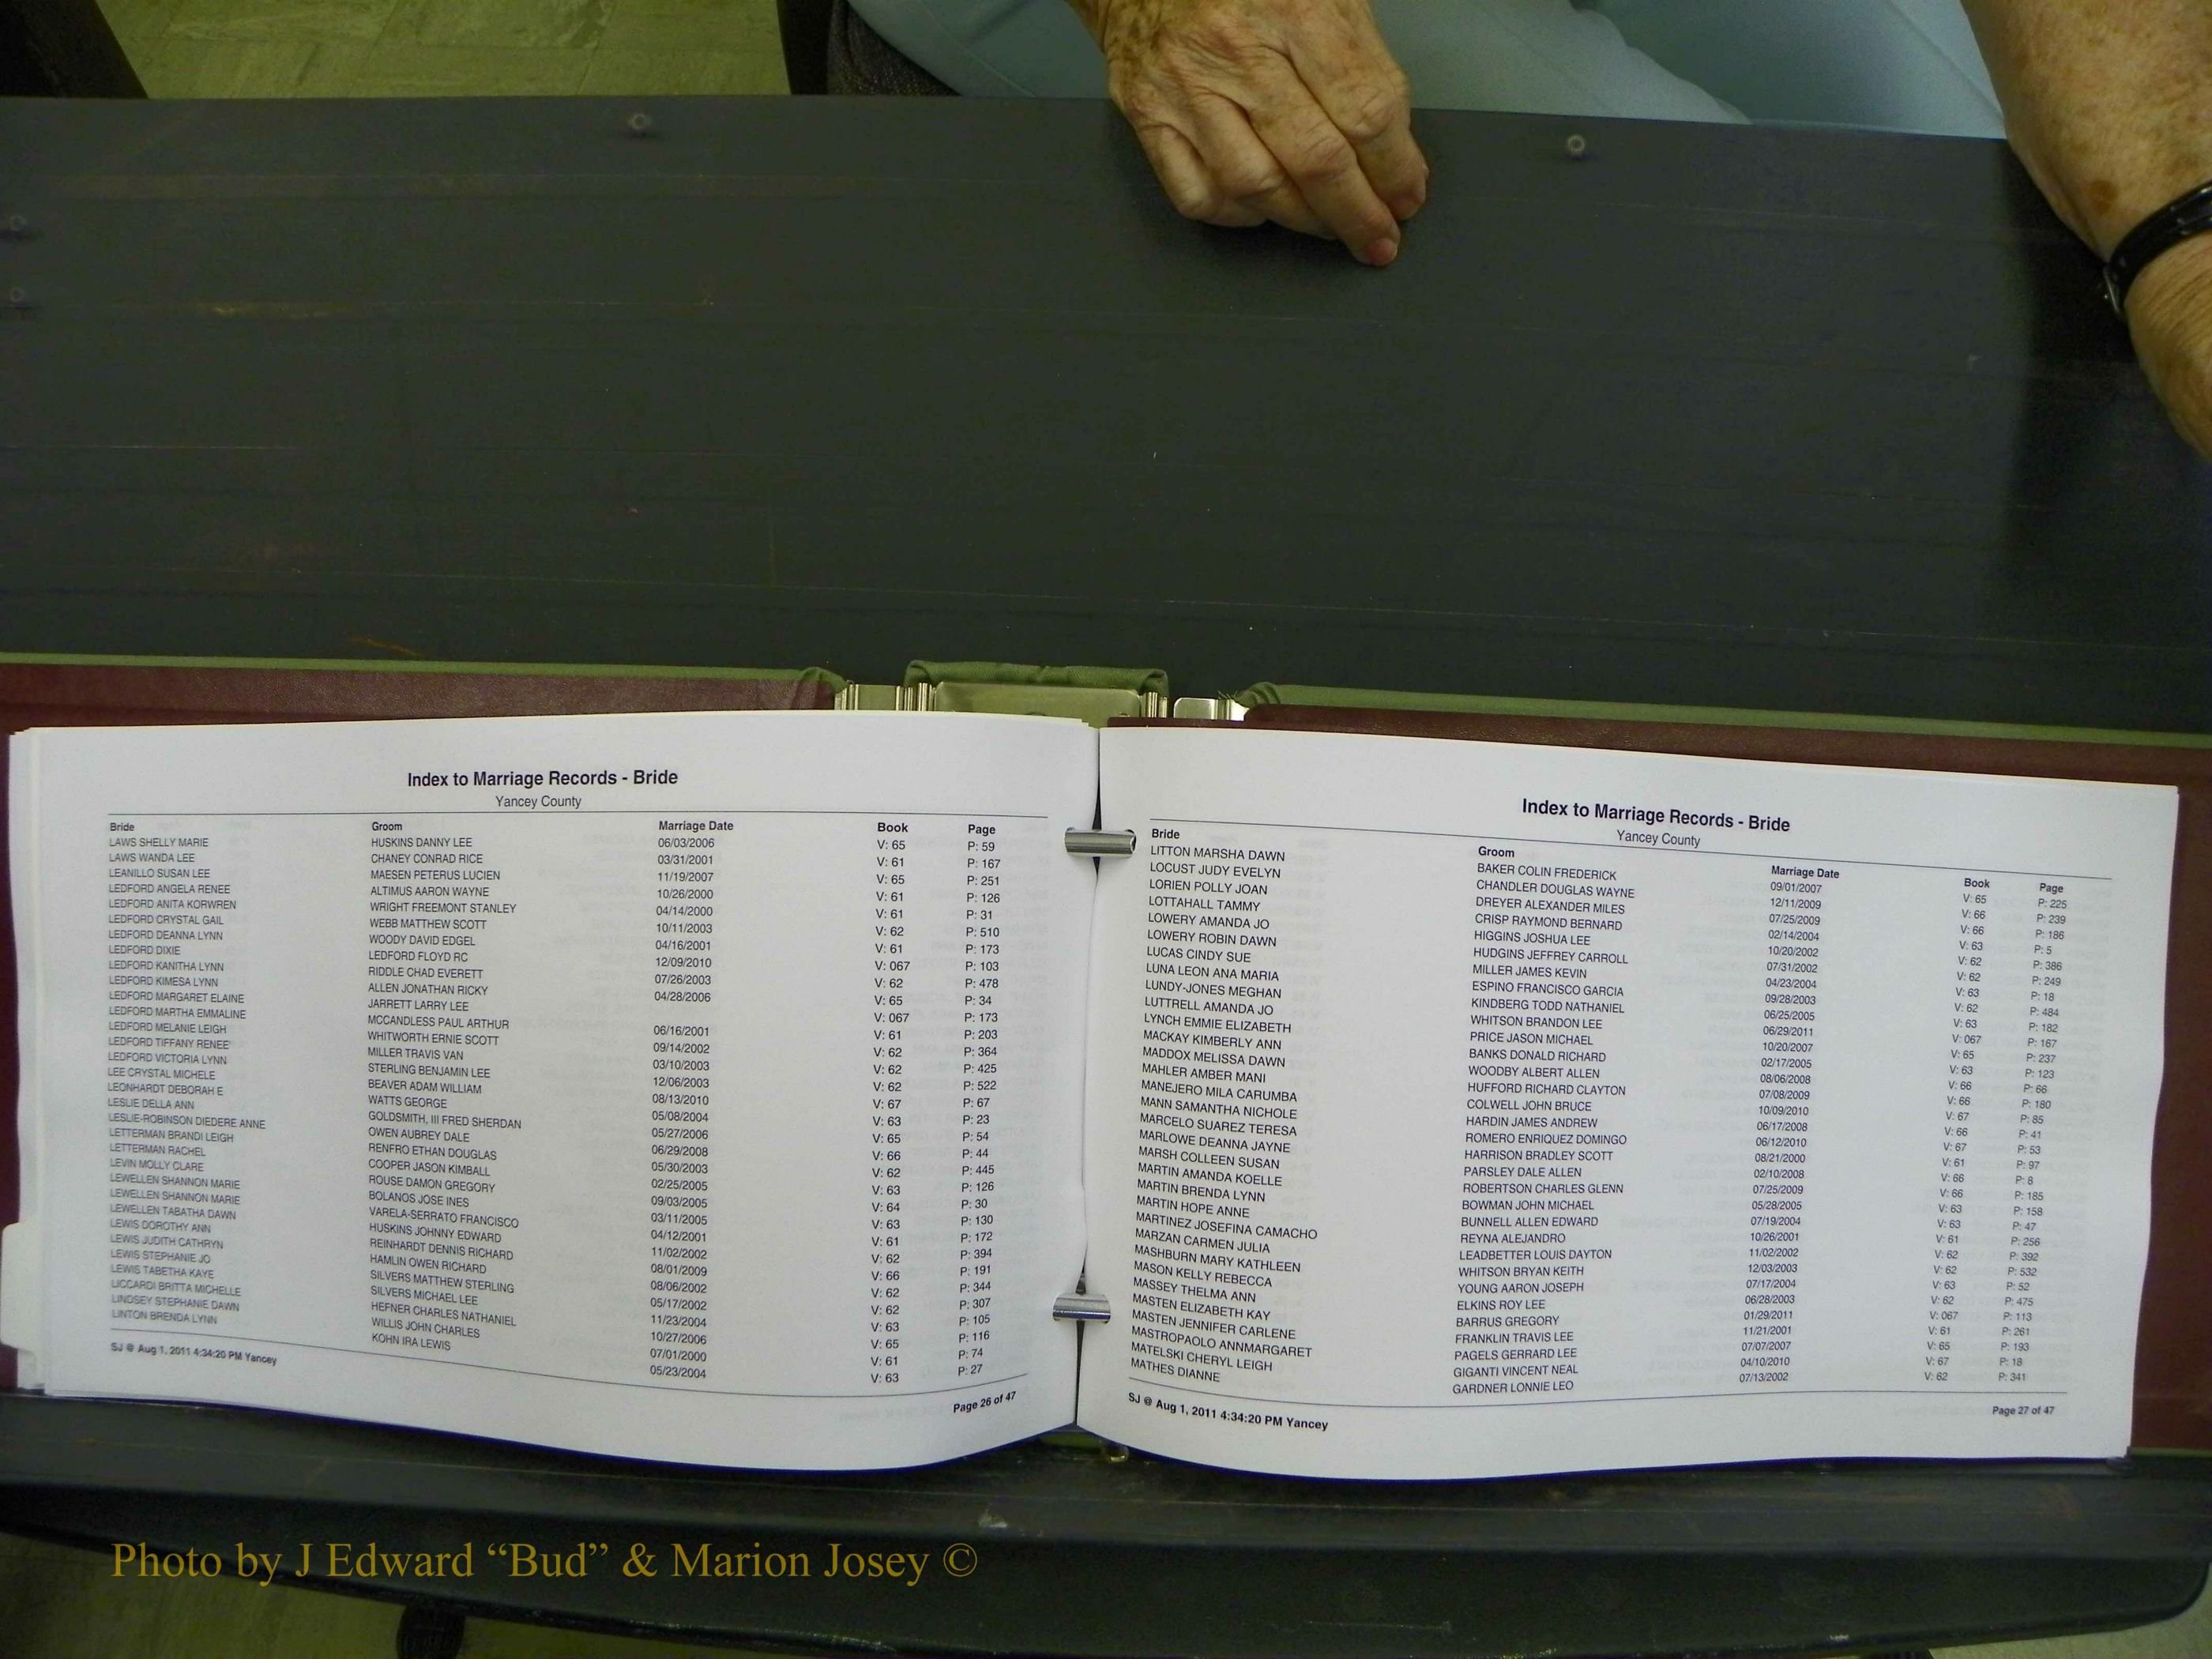 Index to Marriage Records - Bride
Yancey County
Bride Groom Marriage Date Book Page
LAWS SHELLY MARIE HUSKINS DANNY LEE 06/03/2006 V: 65 P: 59
LAWS WANDA LEE CHANEY CONRAD RICE 03/31/2001 V: 61 P: 167
LEANILLO SUSAN LEE MAESEN PETERUS LUCIEN 11/19/2007 V: 65 P: 251
LEDFORD ANGELA RENEE ALTIMUS AARON WAYNE 10/26/2000 V: 61 P: 126
LEDFORD ANITA KORWREN WRIGHT FREEMONT STANLEY 04/14/2000 V: 61 P: 31
LEDFORD CRYSTAL GAIL WEBB MATTHEW SCOTT 10/11/2003 V: 62 P: 510
LEDFORD DEANNA LYNN WOODY DAVID EDGEL 04/16/2001 V: 61 P: 173
LEDFORD DIXIE LEDFORD FLOYD RC 12/09/2010 V: 067 P: 103
LEDFORD KANITHA LYNN RIDDLE CHAD EVERETT 07/26/2003 V: 62 P: 478
LEDFORD KIMESA LYNN ALLEN JONATHAN RICKY 04/28/2006 V: 65 P: 34
LEDFORD MARGARET ELAINE JARRETT LARRY LEE V: 067 P: 173
LEDFORD MARTHA EMMALINE MCCANDLESS PAUL ARTHUR 06/16/2001 V: 61 P: 203
LEDFORD MELANIE LEIGH WHITWORTH ERNIE SCOTT 09/14/2002 V: 62 P: 364
LEDFORD TIFFANY RENEE MILLER TRAVIS VAN 03/10/2003 V: 62 P: 425
LEDFORD VICTORIA LYNN STERLING BENJAMIN LEE 12/06/2003 V: 62 P: 522
LEE CRYSTAL MICHELE BEAVER ADAM WILLIAM 08/13/2010 V: 67 P: 67
LEONHARDT DEBORAH E WATTS GEORGE 05/08/2004 V: 63 P: 23
LESLIE DELLA ANN GOLDSMITH, III FRED SHERDAN 05/27/2006 V: 65 P: 54
LESLIE-ROBINSON DIEDERE ANNE OWEN AUBREY DALE 06/29/2008 V: 66 P: 44
LETTERMAN BRANDI LEIGH RENFRO ETHAN DOUGLAS 05/30/2003 V: 62 P: 445
LETTERMAN RACHEL COOPER JASON KIMBALL 02/25/2005 V: 63 P: 126
LEVIN MOLLY CLARE ROUSE DAMON GREGORY 09/03/2005 V: 64 P: 30
LEWELLEN SHANNON MARIE BOLANOS JOSE INES 03/11/2005 V: 63 P: 130
LEWELLEN SHANNON MARIE VARELA-SERRATO FRANCISCO 04/12/2001 V: 61 P: 172
LEWELLEN TABATHA DAWN HUSKINS JOHNNY EDWARD 11/02/2002 V: 62 P: 394
LEWIS DOROTHY ANN REINHARDT DENNIS RICHARD 08/01/2009 V: 66 P: 191
LEWIS JUDITH CATHRYN HAMLIN OWEN RICHARD 08/06/2002 V: 62 P: 344
LEWIS STEPHANIE JO SILVERS MATTHEW STERLING 05/17/2002 V: 62 P: 307
LEWIS TABETHA KAYE SILVERS MICHAEL LEE 11/23/2004 V: 63 P: 105
LICCARDI BRITTA MICHELLE HEFNER CHARLES NATHANIEL 10/27/2006 V: 65 P: 116
LINDSEY STEPHANIE DAWN WILLIS JOHN CHARLES 07/01/2000 V: 61 P: 74
LINTON BRENDA LYNN KOHN IRA LEWIS 05/23/2004 V: 63 P: 27
SJ @ Aug 1, 2011 4:34:20 PM Yancey Page 26 of 47
Index to Marriage Records - Bride
Yancey County
Bride Groom Marriage Date Book Page
LITTON MARSHA DAWN BAKER COLIN FREDERICK 09/01/2007 V: 65 P: 225
LOCUST JUDY EVELYN CHANDLER DOUGLAS WAYNE 12/11/2009 V: 66 P: 239
LORIEN POLLY JOAN DREYER ALEXANDER MILES 07/25/2009 V: 66 P: 186
LOTTAHALL TAMMY CRISP RAYMOND BERNARD 02/14/2004 V: 63 P: 5
LOWERY AMANDA JO HIGGINS JOSHUA LEE 10/20/2002 V: 62 P: 386
LOWERY ROBIN DAWN HUDGINS JEFFREY CARROLL 07/31/2002 V: 62 P: 249
LUCAS CINDY SUE MILLER JAMES KEVIN 04/23/2004 V: 63 P: 18
LUNA LEON ANA MARIA ESPINO FRANCISCO GARCIA 09/28/2003 V: 62 P: 484
LUNDY-JONES MEGHAN KINDBERG TODD NATHANIEL 06/25/2005 V: 63 P: 182
LUTTRELL AMANDA JO WHITSON BRANDON LEE 06/29/2011 V: 067 P: 167
LYNCH EMMIE ELIZABETH PRICE JASON MICHAEL 10/20/2007 V: 65 P: 237
MACKAY KIMBERLY ANN BANKS DONALD RICHARD 02/17/2005 V: 63 P: 123
MADDOX MELISSA DAWN WOODBY ALBERT ALLEN 08/06/2008 V: 66 P: 66
MAHLER AMBER MANI HUFFORD RICHARD CLAYTON 07/08/2009 V: 66 P: 180
MANEJERO MILA CARUMBA COLWELL JOHN BRUCE 10/09/2010 V: 67 P: 85
MANN SAMANTHA NICHOLE HARDIN JAMES ANDREW 06/17/2008 V: 66 P: 41
MARCELO SUAREZ TERESA ROMERO ENRIQUEZ DOMINGO 06/12/2010 V: 67 P: 53
MARLOWE DEANNA JAYNE HARRISON BRADLEY SCOTT 08/21/2000 V: 61 P: 97
MARSH COLLEEN SUSAN PARSLEY DALE ALLEN 02/10/2008 V: 66 P: 8
MARTIN AMANDA KOELLE ROBERTSON CHARLES GLENN 07/25/2009 V: 66 P: 185
MARTIN BRENDA LYNN BOWMAN JOHN MICHAEL 05/28/2005 V: 63 P: 158
MARTIN HOPE ANNE BUNNELL ALLEN EDWARD 07/19/2004 V: 63 P: 47
MARTINEZ JOSEFINA CAMACHO REYNA ALEJANDRO 10/26/2001 V: 61 P: 256
MARZAN CARMEN JULIA LEADBETTER LOUIS DAYTON 11/02/2002 V: 62 P: 392
MASHBURN MARY KATHLEEN WHITSON BRYAN KEITH 12/03/2003 V: 62 P: 532
MASON KELLY REBECCA YOUNG AARON JOSEPH 07/17/2004 V: 63 P: 52
MASSEY THELMA ANN ELKINS ROY LEE 06/28/2003 V: 62 P: 475
MASTEN ELIZABETH KAY BARRUS GREGORY 01/29/2011 V: 067 P: 113
MASTEN JENNIFER CARLENE FRANKLIN TRAVIS LEE 11/21/2001 V: 61 P: 261
MASTROPAOLO ANNMARGARET PAGELS GERRARD LEE 07/07/2007 V: 65 P: 193
MATELSKI CHERYL LEIGH GIGANTI VINCENT NEAL 04/10/2010 V: 67 P: 18
MATHES DIANNE GARDNER LONNIE LEO 07/13/2002 V: 62 P: 341
SJ @ Aug 1, 2011 4:34:20 PM Yancey Page 27 of 47
Photo by J Edward “Bud” & Marion Josey ©